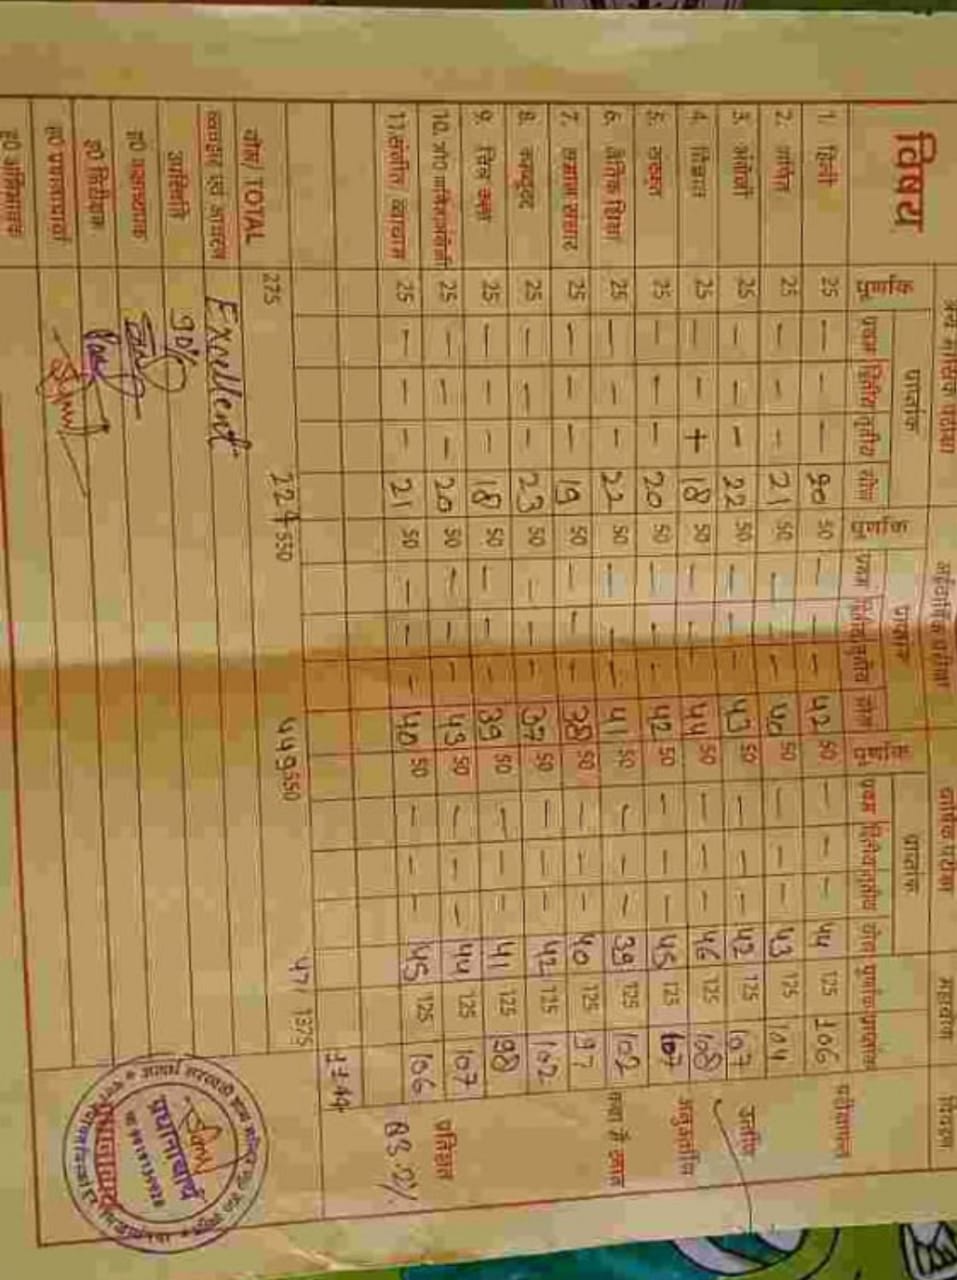 विषय पूर्णांक प्रथम द्वितीय तृतीय योग पूर्णांक प्रथम द्वितीय तृतीय योग पूर्णांक प्रथम द्वितीय तृतीय योग पूर्णांक प्राप्तांक
प्राप्तांक प्राप्तांक प्राप्तांक
अर्द्धवार्षिक परीक्षा वार्षिक परीक्षा महायोग विवरण
1. हिन्दी 25 — — — 20 50 — — — 42 50 — — — 44 125 106 परीक्षाफल
2. गणित 25 — — — 21 50 — — — 40 50 — — — 43 125 104
3. अंग्रेजी 25 — — — 22 50 — — — 43 50 — — — 42 125 107 उत्तीर्ण
4. विज्ञान 25 — — + 18 50 — — — 44 50 — — — 46 125 108
5. संस्कृत 25 — — — 20 50 — — — 42 50 — — — 45 125 107 अनुत्तीर्ण
6. नैतिक शिक्षा 25 — — — 22 50 — — — 41 50 — — — 39 125 102 कक्षा में स्थान
7. हमारा संसार 25 — — — 19 50 — — — 38 50 — — — 40 125 97
8. कम्प्यूटर 25 — — — 23 50 — — — 37 50 — — — 42 125 102
9. चित्र कला 25 — — — 18 50 — — — 39 50 — — — 41 125 98
10. 25 — — — 20 50 — — — 43 50 — — — 44 125 107 प्रतिशत
11. संगीत/ व्यायाम 25 — — — 21 50 — — — 40 50 — — — 45 125 106
योग/ TOTAL 275 550 449 550 471 1375
व्यवहार एवं आचरण Excellent
उपस्थिति 90%
ह0 कक्षाध्यापक
ह0 निरीक्षक
ह0 प्रधानाचार्य
ह0 अभिभावक
प्रधानाचार्य